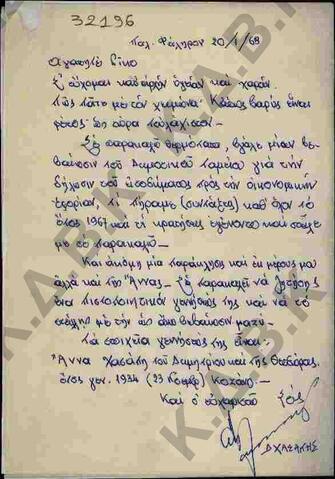 32196
Παλ. Φάληρον 20/1/68
Αγαπητέ
Σ' εύχομαι καθ' αρχήν υγείαν και χαράν.
Πώς πάτε με τον χειμώνα; Κάπως βαρύς είναι
φέτος; Εδώ τουλάχιστον.
Σε παρακαλώ θερμότατα, βγάλε μίαν βε-
βαίωσιν του Δημοτικού Ταμείου για την
δήλωσιν του εισοδήματος προς την οικονομικήν
εφορίαν, τι πήραμε (συντάξεις) καθ' όλον το
έτος 1967 και τι κρατήσεις εγένοντο και στείλε
με το παρακαλώ.
Και ακόμη μία παράκλησις και εκ μέρους μου
αλλά και της Άννας - Σε παρακαλεί να ζητήσης
ένα πιστοποιητικόν γεννήσεώς της και να το
στείλης με την ως άνω βεβαίωσιν μαζύ.
Τα στοιχεία γεννήσεώς της είναι:
Άννα Χασάκη του Δημητρίου και της Θεοδώρας.
έτος γεν. 1934 (23 Νοεμβρ) Κοζάνη. -
Και σ' ευχαριστώ
Σος
Δ ΧΑΣΑΚΗΣ
Κ.Δ.Β.Κ